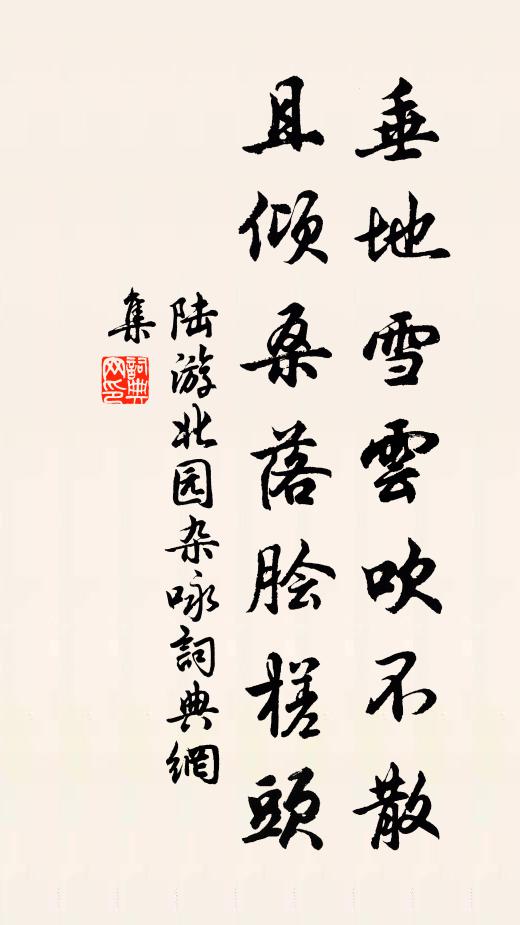 垂地雪雲吹不散
且倾桑落脍槎頭
陆游北园杂咏詞典網
集
詞典网印